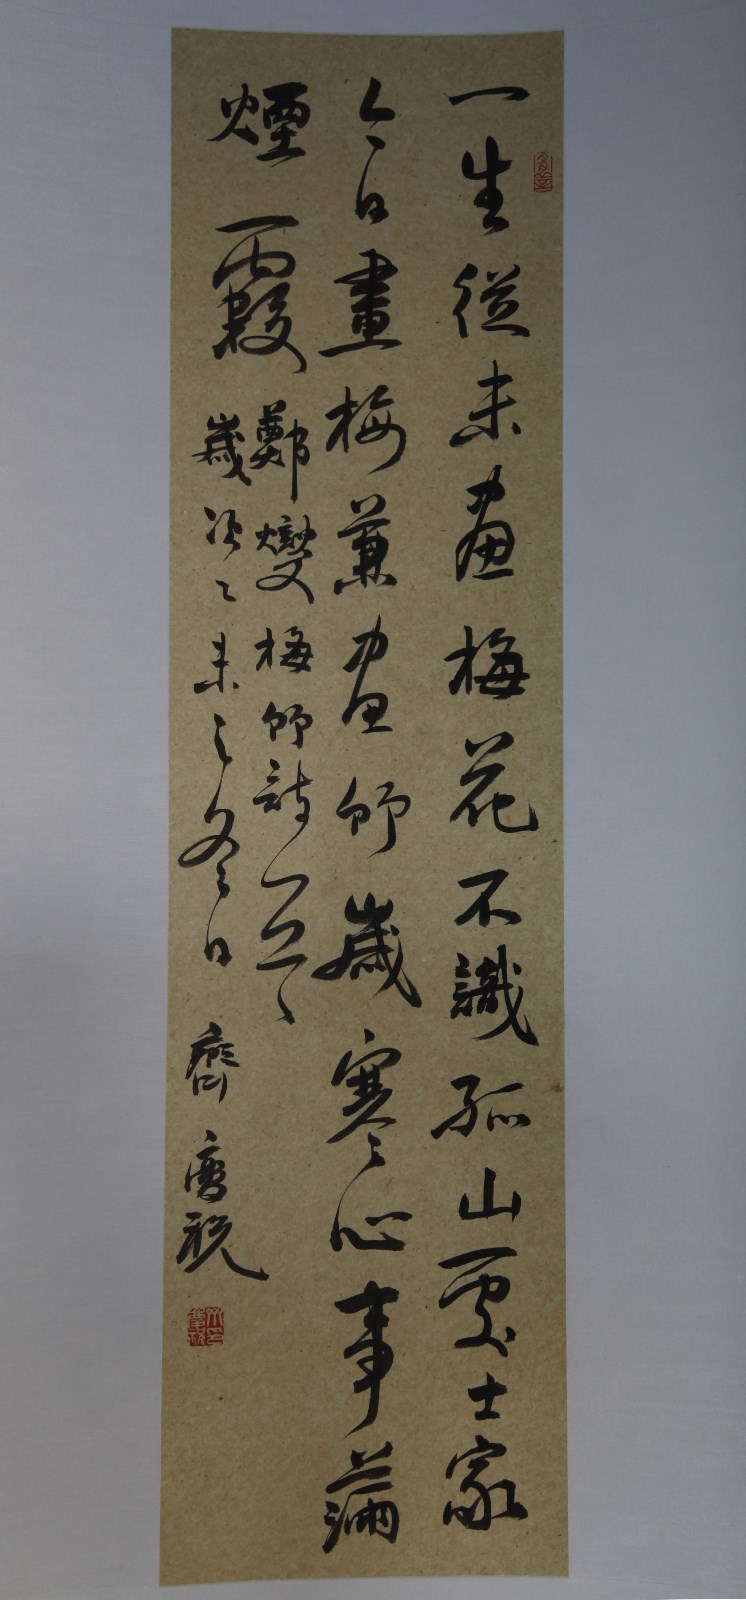 一生從未畫梅花不識孤山處士家
今日畫梅兼畫竹歲寒心事滿
煙霞
鄭燮梅竹詩一首
歲次乙未之冬日